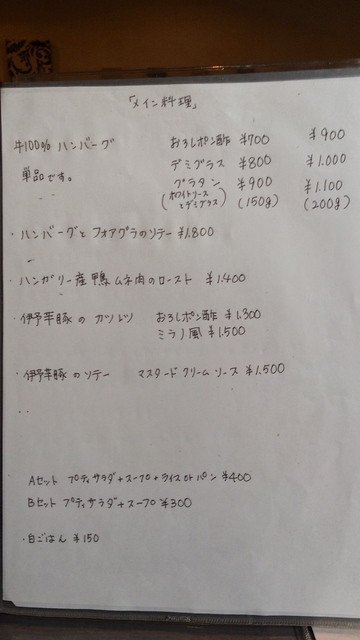 「メイン料理」
牛100% ハンバーグ おろしポン酢 ¥700 ¥900
単品です。 デミグラス ¥800 ¥1.000
グラタン ¥900 ¥1.100
(ホワイトソースとデミグラス) (150g) (200g)
・ハンバーグと フォアグラのソテー ¥1.800
・ハンガリー産鴨ムネ肉のロースト ¥1.400
・伊予芋豚の カツレツ おろしポン酢 ¥1.300
ミラノ風 ¥1.500
・伊予芋豚 のソテー マスタード クリーム ソース ¥1.500
Aセット プティサラダ+スープ+ライスor パン ¥400
Bセット プティサラダ+スープ ¥300
・白ごはん ¥150